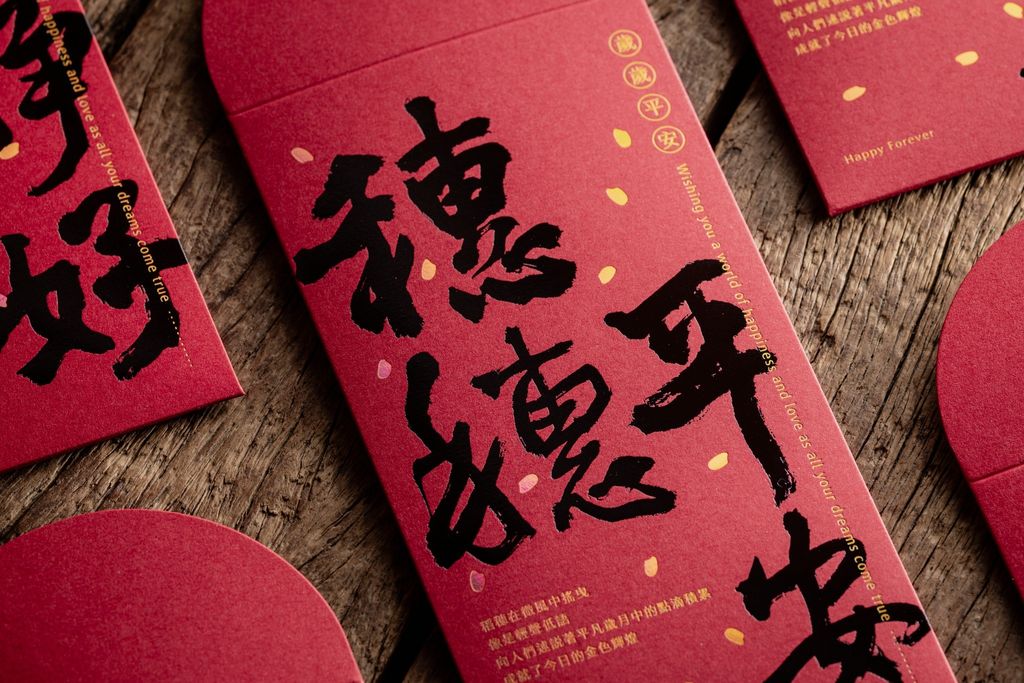 穗穗平安
歲歲平安
Wishing you a world of happiness and love as all your dreams come true
稻穗在微風中搖曳
像是輕聲低語
向人們速說著平凡歲月中的點滴積累
成就了今日的金色輝煌
好
happiness and love as all your dreams come true
向人們速說著平凡
成就了今日的金色輝煌
Happy Forever